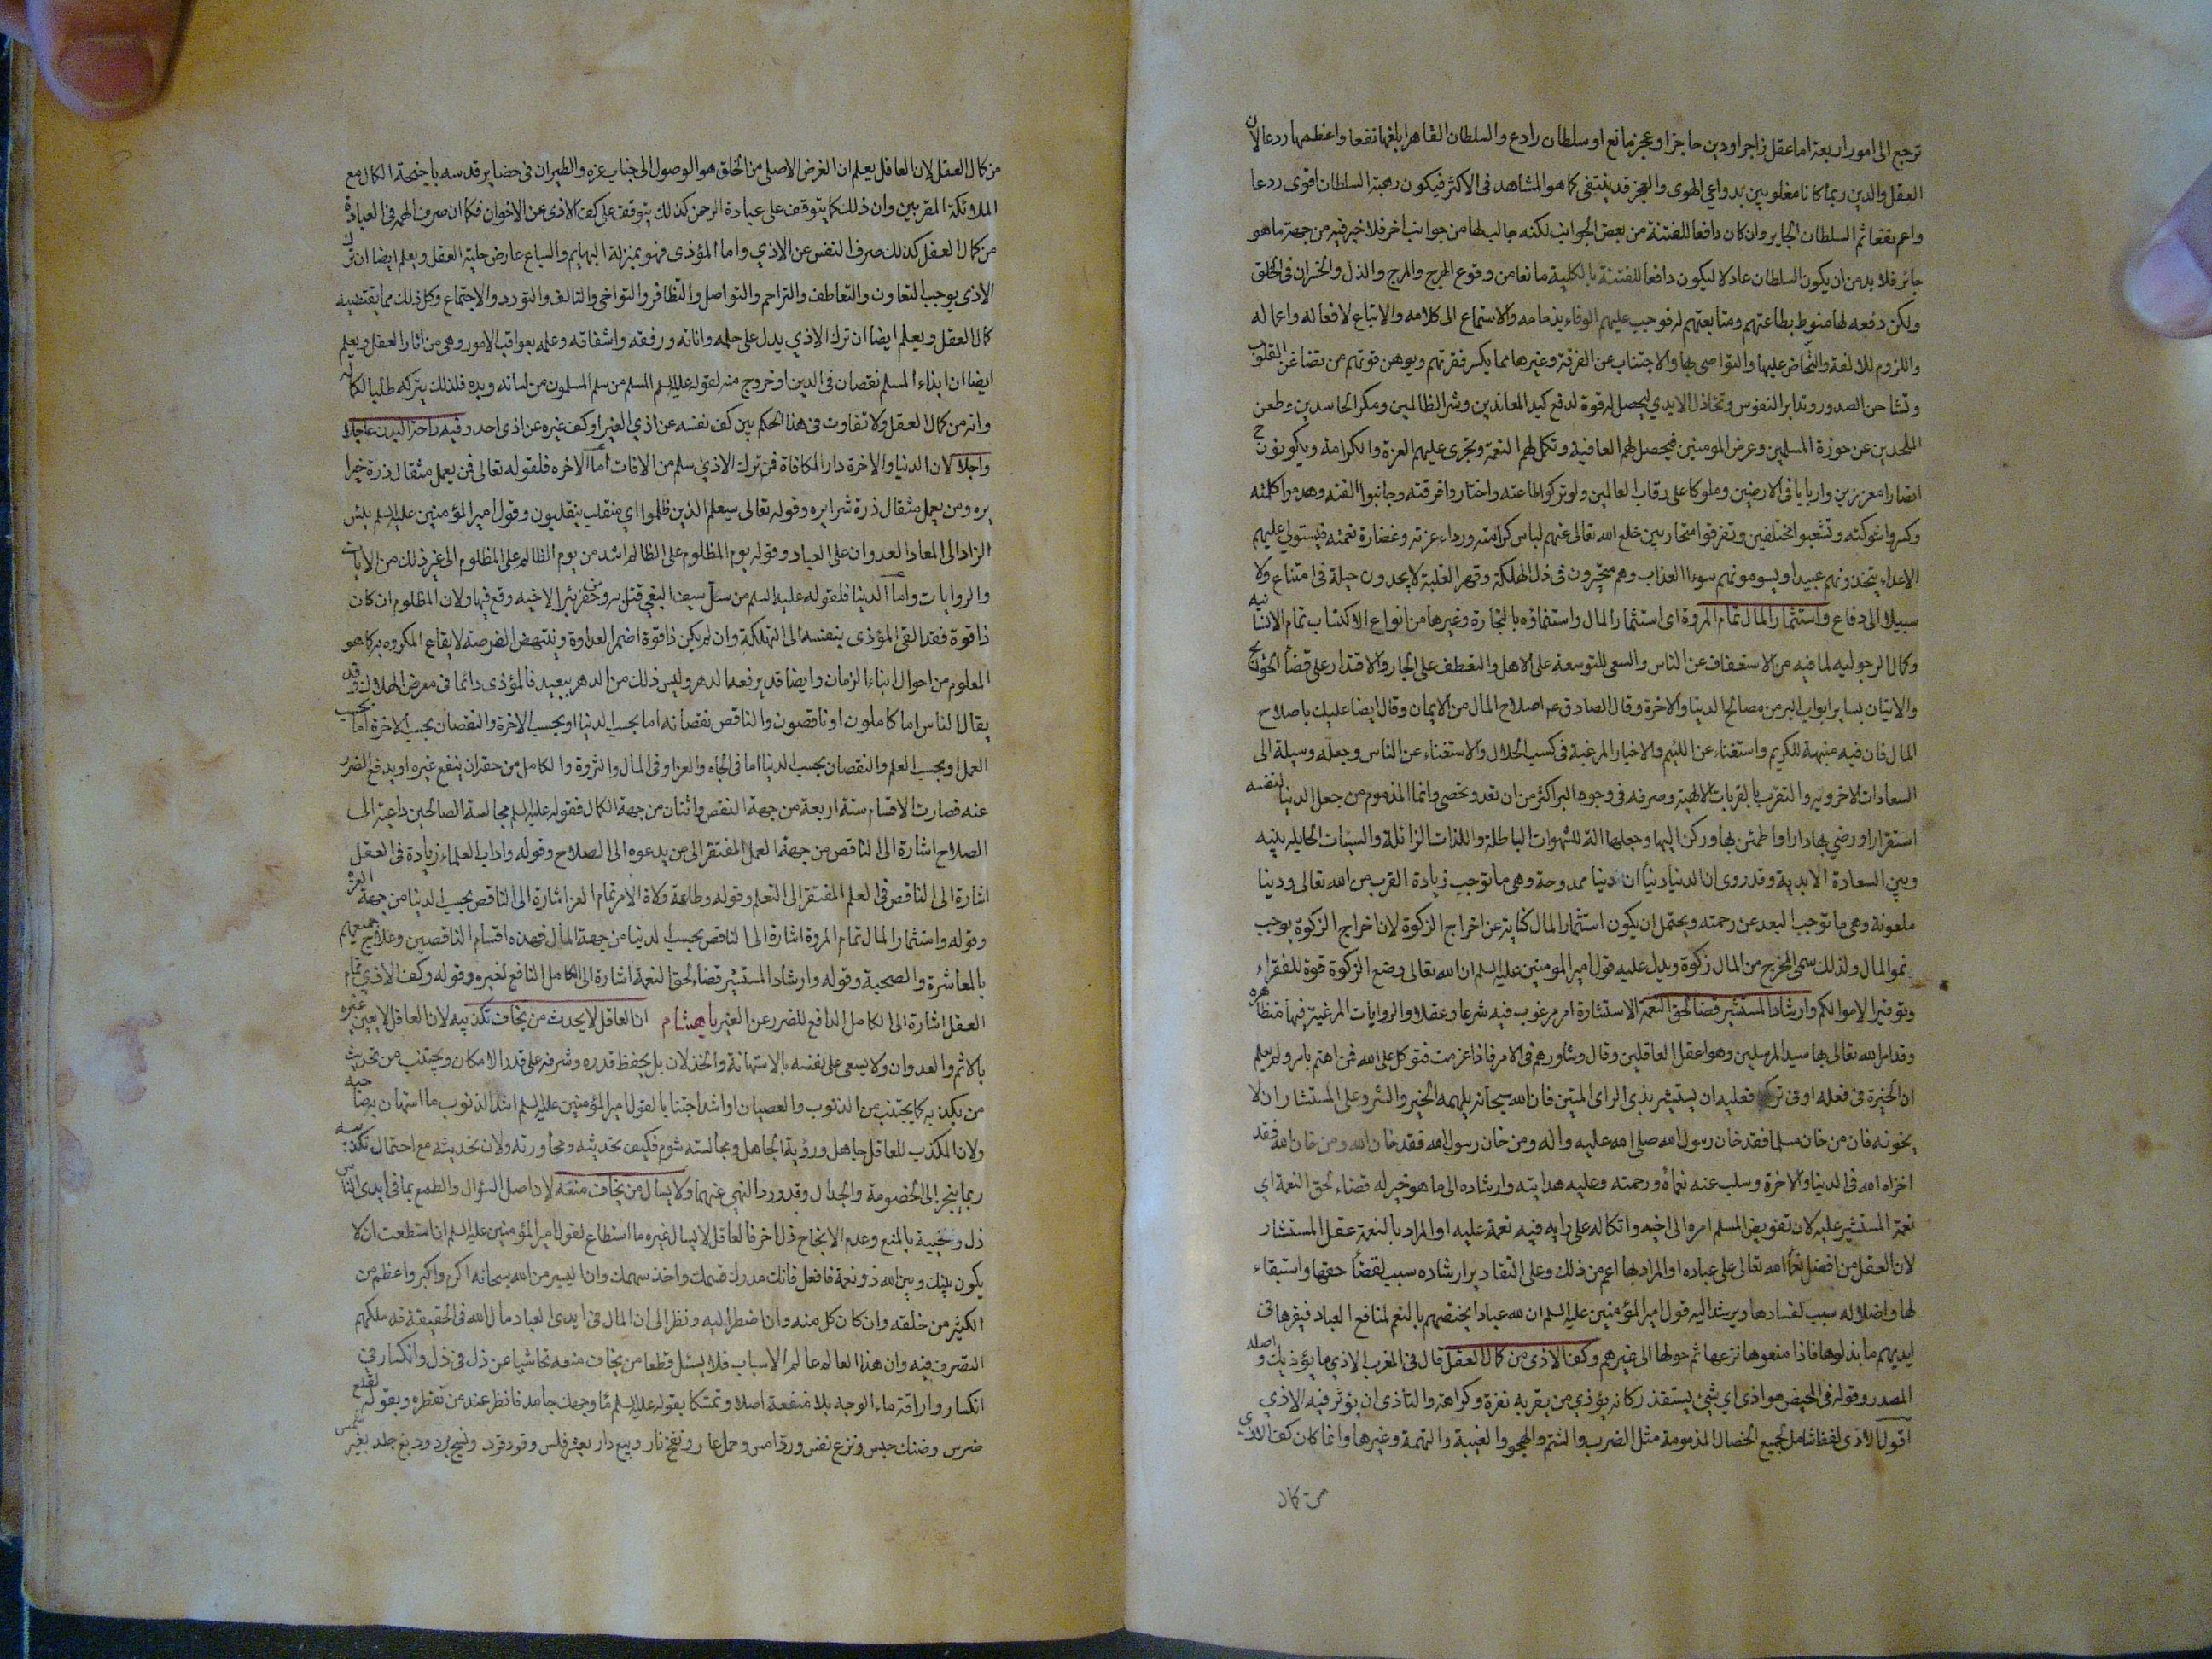 ترجع الى امور اربعة اما عقل زاجر او دين حاجز او عجز مانع او سلطان رادع والسلطان القاهر ابلغها نفعا واعظمها ردعا لان
العقل والدين ربما كانا مغلوبين بدواعي الهوى والعجز قد ينتفى كما هو المشاهد فى الاكثر فيكون رهبة السلطان اقوى ردعا
واعم نفعا ثم السلطان الجاير وان كان دافعا للفتنة من بعض الجوانب لكنه جالب لها من جوانب اخر فلا خير فيه من جهة ما هو
جائر فلا بد من ان يكون السلطان عادلا ليكون دافعا للفتنة بالكلية مانعا من وقوع الهرج والمرج والذل والخسران فى الخلق
ولكن دفعه لها منوط بطاعتهم ومتابعتهم له فوجب عليهم الوفاء بذمامه والاستماع الى كلامه والاتباع لافعاله واعماله
واللزوم للالفة والتحاض عليها والتواصى بها والاجتناب عن الفرقة وغيرها مما يكسر فقرتهم ويوهن قوتهم من تضاغن القلوب
وتشاحن الصدور وتدابر النفوس وتخاذل الايدي ليحصل له قوة لدفع كيد المعاندين وشر الظالمين ومكر الحاسدين وطعن
الملحدين عن حوزة المسلمين وعرض المومنين فيحصل لهم العافية وتكمل لهم النعمة وتجرى عليهم العزة والكرامة ويكونون ح
انصارا معززين واربابا فى الارضين وملوكا على رقاب العالمين ولو تركوا طاعته واختاروا فرقته وجانبوا الفته وهدموا كلمته
وكسروا شوكته وتشعبوا مختلفين وتفرقوا متحاربين خلع الله تعالى عنهم لباس كرامته ورداء عزته وغضارة نعمته فيستولي عليهم
الاعداء يتخذونهم عبيدا ويسومونهم سوء العذاب وهم متحيرون فى ذل الهلكة وقهر الغلبة لا يجدون حيلة فى امتناع ولا
سبيلا الى دفاع واستثمار المال تمام المروة اى استثمار المال واستنماؤه بالتجارة وغيرها من انواع الاكتساب تمام الانسانيه
وكمال الرجوليه لما فيه من الاستعفاف عن الناس والسعى للتوسعة على الاهل والتعطف على الجار والاقتدار على قضاء الحوائج
والاتيان بساير ابواب البر من مصالح الدنيا والاخرة وقال الصادق ع اصلاح المال من الايمان وقال ايضا عليك باصلاح
المال فان فيه منبهة للكريم واستغناء عن اللئيم والاخبار المرغبة فى كسب الحلال والاستغناء عن الناس وجعله وسيلة الى
السعادات الاخروية والتقرب بالقربات الالهية وصرفه فى وجوه البر اكثر من ان تعد وتحصى وانما المذموم من جعل الدنيا لنفسه
استقرارا ورضي بها دارا واطمئن بها وركن اليها وجعلها الة للشهوات الباطلة واللذات الزائلة والسيئات الحايله بينه
وبين السعادة الابدية وقد روى ان الدنيا دنياان دنيا ممدوحة وهى ما توجب زيادة القرب من الله تعالى ودنيا
ملعونة وهى ما توجب البعد عن رحمته ويحتمل ان يكون استثمار المال كناية عن اخراج الزكوة لان اخراج الزكوة يوجب
نمو المال ولذلك سمى المخرج من المال زكوة ويدل عليه قول امير المومنين عليه السلم ان الله تعالى وضع الزكوة قوة للفقراء
وتوفيرا لاموالكم وارشاد المستشير قضاء لحق النعمة الاستشارة امر مرغوب فيه شرعا وعقلا والروايات المرغبة فيها متظاهره
وقد امر الله تعالى بها سيد المرسلين وهو اعقل العاقلين وقال وشاورهم فى الامر فاذا عزمت فتوكل على الله فمن اهتم بامر ولم يعلم
ان الخيرة فى فعله او فى تركه فعليه ان يستشير بذى الراى المتين فان الله سبحانه يلهمه الخير والشر وعلى المستشار ان لا
يخونه فان من خان مسلما فقد خان رسول الله صلى الله عليه واله ومن خان رسول الله فقد خان الله ومن خان الله فقد
اخزاه الله فى الدنيا والاخرة وسلب عنه نعماه ورحمته وعليه هدايته وارشاده الى ما هو خير له قضاء لحق النعمة اي
نعمة المستشير عليه لان تفويض المسلم امره الى اخيه واتكاله على رايه فيه نعمة عليه او المراد بالنعمة عقل المستشار
لان العقل من افضل نعماء الله تعالى على عباده او المراد بها اعم من ذلك وعلى التقادير ارشاده سبب لقضاء حقها واستبقاء
لها واضلاله سبب لفسادها ويرشد اليه قول امير المؤمنين عليه السلم ان لله عبادا يختصهم بالنعم لمنافع العباد فيقرها فى
ايديهم ما بذلوها فاذا منعوها نزعها ثم حولها الى غيرهم وكف الاذى من كمال العقل قال فى المغرب الاذي ما يؤذيك واصله
المصدر وقوله فى المحيض هو اذى اي شيئ يستقذر كانه يؤذي من يقربه نفرة وكراهة والتاذى ان يؤثر فيه الاذي
اقول الاذى لفظ شامل لجميع الخصال المذمومة مثل الضرب والشتم والهجو والغيبة والتهمة وغيرها وانما كان كف الاذى
من كمال
من كمال العقل لان العاقل يعلم ان الغرض الاصلى من الخلق هو الوصول الى جناب عزه والطيران فى حضاير قدسه باجنحة الكمال مع
الملائكة المقربين وان ذلك كما يتوقف على عبادة الرحمن كذلك يتوقف على كف الاذى عن الاخوان فكما ان صرف الهمة فى العبادة
من كمال العقل كذلك صرف النفس عن الاذي واما المؤذى فهو بمنزلة البهايم والسباع عار عن حلية العقل ويعلم ايضا ان ترك
الاذى يوجب التعاون والتعاطف والتراحم والتواصل والتظافر والتواخى والتالف والتودد والاجتماع وكل ذلك مما يقتضيه
كمال العقل ويعلم ايضا ان ترك الاذي يدل على حلمه واناته ورفقه واشفاقه وعلمه بعواقب الامور وهى من اثار العقل ويعلم
ايضا ان ايذاء المسلم نقصان فى الدين او خروج منه لقوله عليه السلم المسلم من سلم المسلمون من لسانه ويده فلذلك يتركه طلبا لكماله
وانه من كمال العقل ولا تفاوت فى هذا الحكم بين كف نفسه عن اذي الغير او كف غيره عن اذى احد وفيه راحة البدن عاجلا
واجلا لان الدنيا والاخرة دار المكافاة فمن ترك الاذي سلم من الافات اما الاخره فلقوله تعالى فمن يعمل مثقال ذرة خيرا
يره ومن يعمل مثقال ذرة شرا يره وقوله تعالى سيعلم الذين ظلموا اي منقلب ينقلبون وقول امير المؤمنين عليه السلم بئس
الزاد الى المعاد العدوان على العباد وقوله يوم المظلوم على الظالم اشد من يوم الظالم على المظلوم الى غير ذلك من الايات
والروايات واما الدنيا فلقوله عليه السلم من سل سيف البغي قتل به ومن حفر بئرا لاخيه وقع فيها ولان المظلوم ان كان
ذا قوة فقد القى المؤذى بنفسه الى التهلكة وان لم يكن ذا قوة اضمر العداوة وينتهض الفرصة لايقاع المكروه به كما هو
المعلوم من احوال ابناء الزمان وايضا قد يرفعه الدهر وليس ذلك من الدهر ببعيد فالمؤذى دائما فى معرض الهلاك وقد
يقال الناس اما كاملون او ناقصون والناقص نقصانه اما بحسب الدنيا او بحسب الاخرة والنقصان بحسب الاخرة اما بحسب
العمل او بحسب العلم والنقصان بحسب الدنيا اما فى الجاه والعز او فى المال والثروة والكامل من حقه ان ينفع غيره او يدفع الضرر
عنه فصارت الاقسام ستة اربعة من جهة النقص واثنان من جهة الكمال فقوله عليه السلم مجالسة الصالحين داعية الى
الصلاح اشارة الى الناقص من جهة العمل المفتقر الى من يدعوه الى الصلاح وقوله واداب العلماء زيادة فى العقل
اشارة الى الناقص فى العلم المفتقر الى التعلم وقوله وطاعة ولاة الامر تمام العز اشارة الى الناقص بحسب الدنيا من جهة العزة
وقوله واستثمار المال تمام المروة اشارة الى الناقص بحسب الدنيا من جهة المال فهذه اقسام الناقصين وعلاج جميعهم
بالمعاشرة والصحبة وقوله وارشاد المستشير قضاء لحق النعمة اشارة الى الكامل النافع لغيره وقوله وكف الاذي تمام
العقل اشارة الى الكامل الدافع للضرر عن الغير يا هشام ان العاقل لا يحدث من يخاف تكذيبه لان العاقل لا يعين غيره
بالاثم والعدوان ولا يسعى على نفسه بالاستهانة والخذلان بل يحفظ قدره وشرفه على قدر الامكان ويجتنب من تحديث
من يكذبه كما يجتنب من الذنوب والعصيان او اشد اجتنابا لقول امير المؤمنين عليه السلم اشد الذنوب ما استهان به صاحبه
ولان المكذب للعاقل جاهل ورؤية الجاهل ومجالسته شوم فكيف تحديثه ومحاورته ولان تحديثه مع احتمال تكذيبه
ربما ينجر الى الخصومة والجدال وقد ورد النهي عنهما ولا يسال من يخاف منعه لان اصل السؤال والطمع بما فى ايدى الناس
ذل وخيبة بالمنع وعدم الانجاح ذل اخر فالعاقل لا يسال غيره ما استطاع لقول امير المؤمنين عليه السلم ان استطعت ان لا
يكون بينك وبين الله ذو نعمة فافعل فانك مدرك قسمك واخذ سهمك وان اليسير من الله سبحانه اكرم واكبر واعظم من
الكثير من خلقه وان كان كل منه وان اضطر اليه ونظر الى ان المال فى ايدى العباد مال الله فى الحقيقة قد ملكهم
التصرف فيه وان هذا العالم عالم الاسباب فلا يسئل قطعا من يخاف منعه تحاشيا عن ذل فى ذل وانكسار فى
انكسار واراقة ماء الوجه بلا منفعة اصلا وتمسكا بقوله عليه السلم ماء وجهك جامد فانظر عند من تقطره وبقوله لقلع
ضرس وضنك حبس ونزع نفس ورد امس وحمل عار ونفخ نار وبيع دار بعشر فلس وقود قرد ونسج برد ودبغ جلد بغير شمس